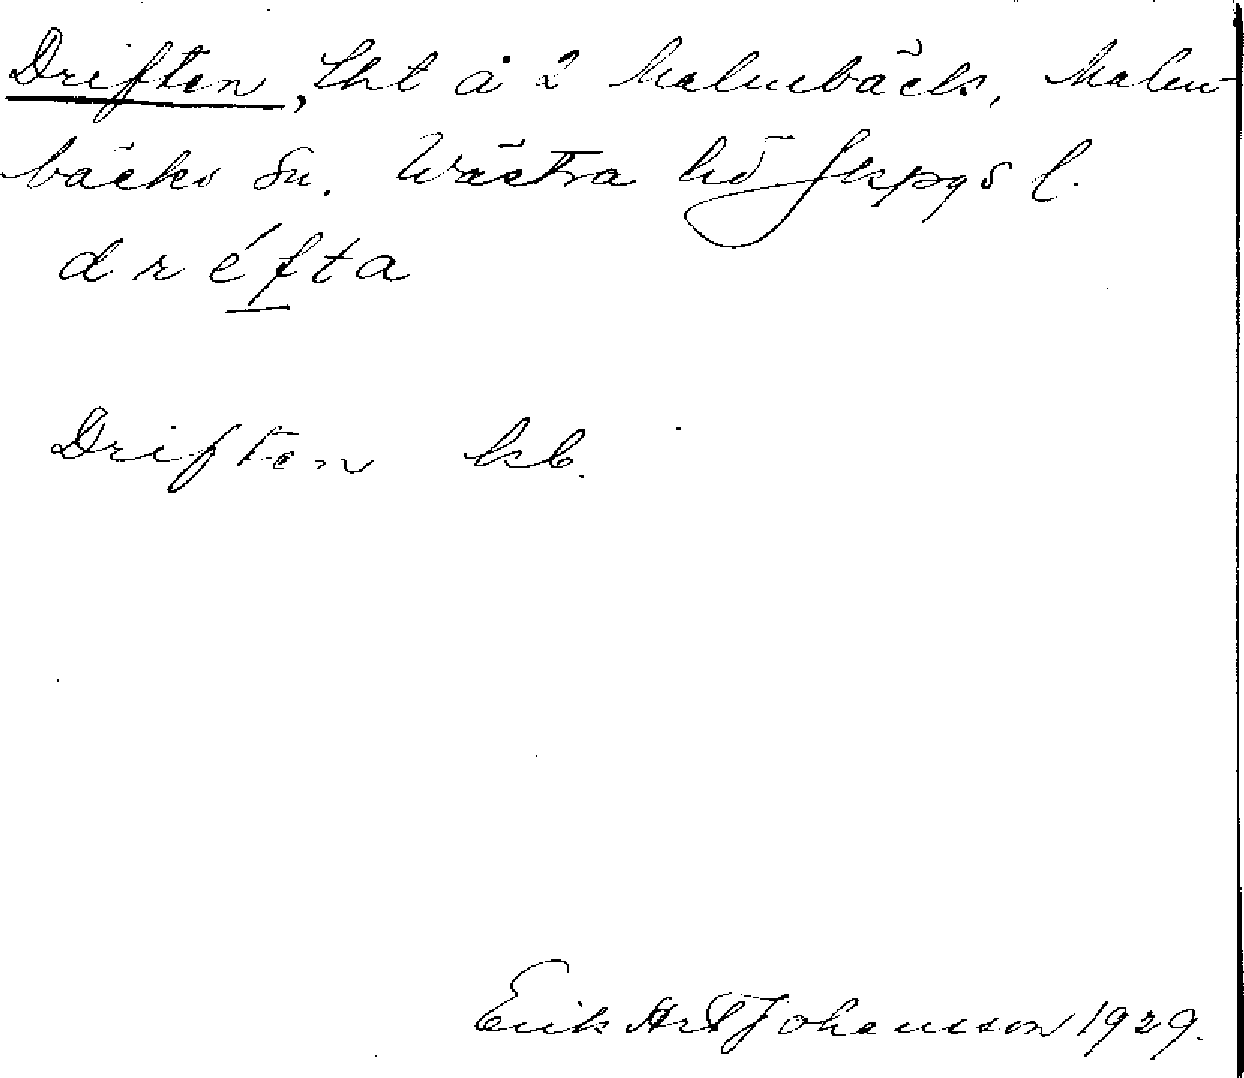 Driften, Lht å 2 Malmbäck, Malm-
bäcks Sn. Västra hd Jkpgs l.
dréfta
Driften kb.
Erik Art Johansson 1929.